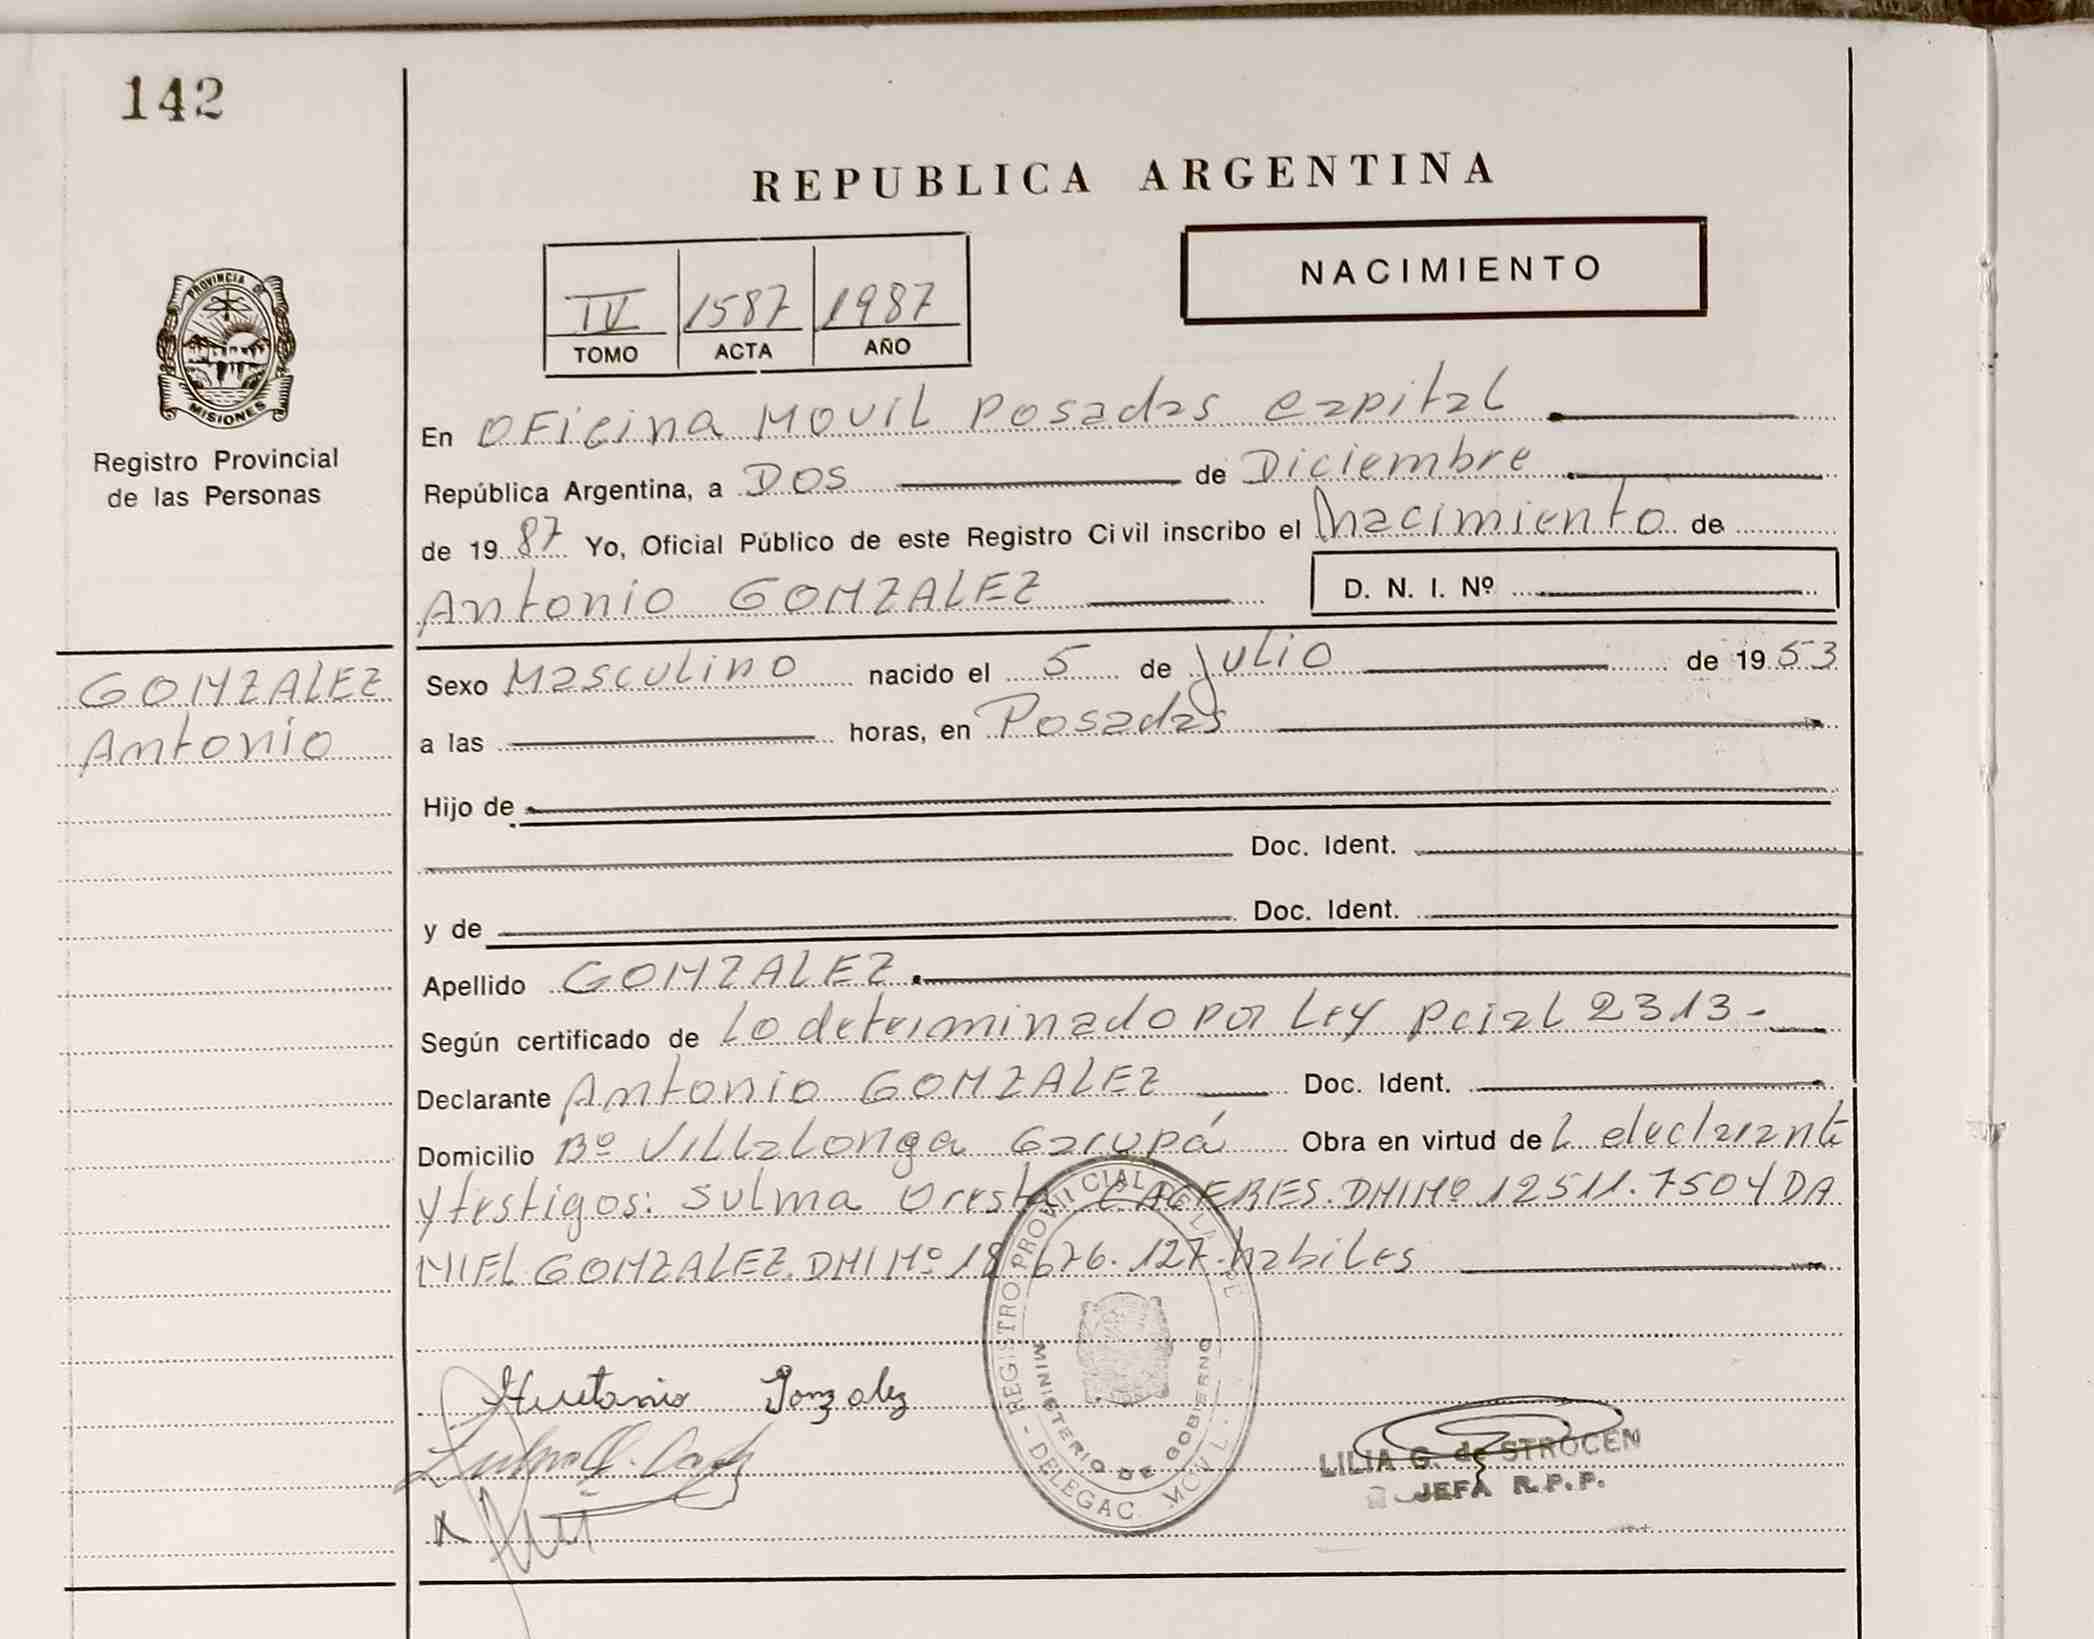 142
REPUBLICA ARGENTINA
NACIMIENTO
IV 1587 1987
TOMO ACTA AÑO
PROVINCIA DE
MISIONES
Registro Provincial
de las Personas
En OFicina MOVIL Posadas capital
República Argentina, a DOS de Diciembre
de 19 87 Yo, Oficial Público de este Registro Civil inscribo el Nacimiento de
Antonio GONZALEZ D. N. I. Nº
GONZALEZ
Antonio
Sexo Masculino nacido el 5 de Julio de 19 53
a las horas, en Posadas
Hijo de
Doc. Ident.
y de Doc. Ident.
Apellido GONZALEZ
Según certificado de Lo determinado por Ley Pcial 2313-
Declarante Antonio GONZALEZ Doc. Ident.
Domicilio Bº Villalonga Garupá Obra en virtud de L declarante
y testigos: Sulma Oresta CACERES. DNI Nº 12511.750 Y DA
NIEL GONZALEZ. DNI Nº 18 676.127. habiles
REGISTRO PROVINCIAL DE
MINISTERIO DE GOBIERNO
DELEGAC. MOVIL
Gonzalez
LILIA G. de STROCEN
JEFA R.P.P.